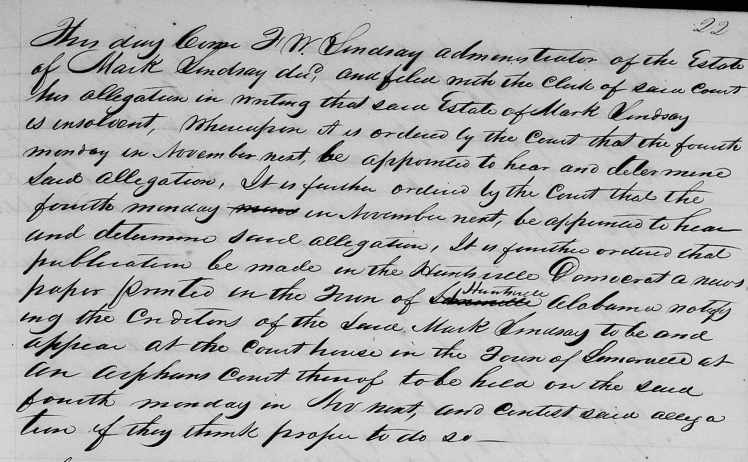 22
This day Came F W Lindsay administrator of the Estate
of Mark Lindsay decd, and filed with the Clerk of said Court
his allegation in writing that said Estate of Mark Lindsay
is insolvent, Whereupon it is ordered by the Court that the fourth
monday in November next, be appointed to hear and determine
said allegation, It is further ordered by the Court that the
fourth monday in November next, be appointed to hear
and determine said allegation, It is further ordered that
publication be made in the Huntsville Democrat a news
paper printed in the Town of Somerville Huntsville Alabama notify
ing the Creditors of the said Mark Lindsay to be and
appear at the Court house in the Town of Somerville at
an orphans Court thereof to be held on the said
fourth monday in Nov next, and Contest said allega
tion if they think proper to do so —